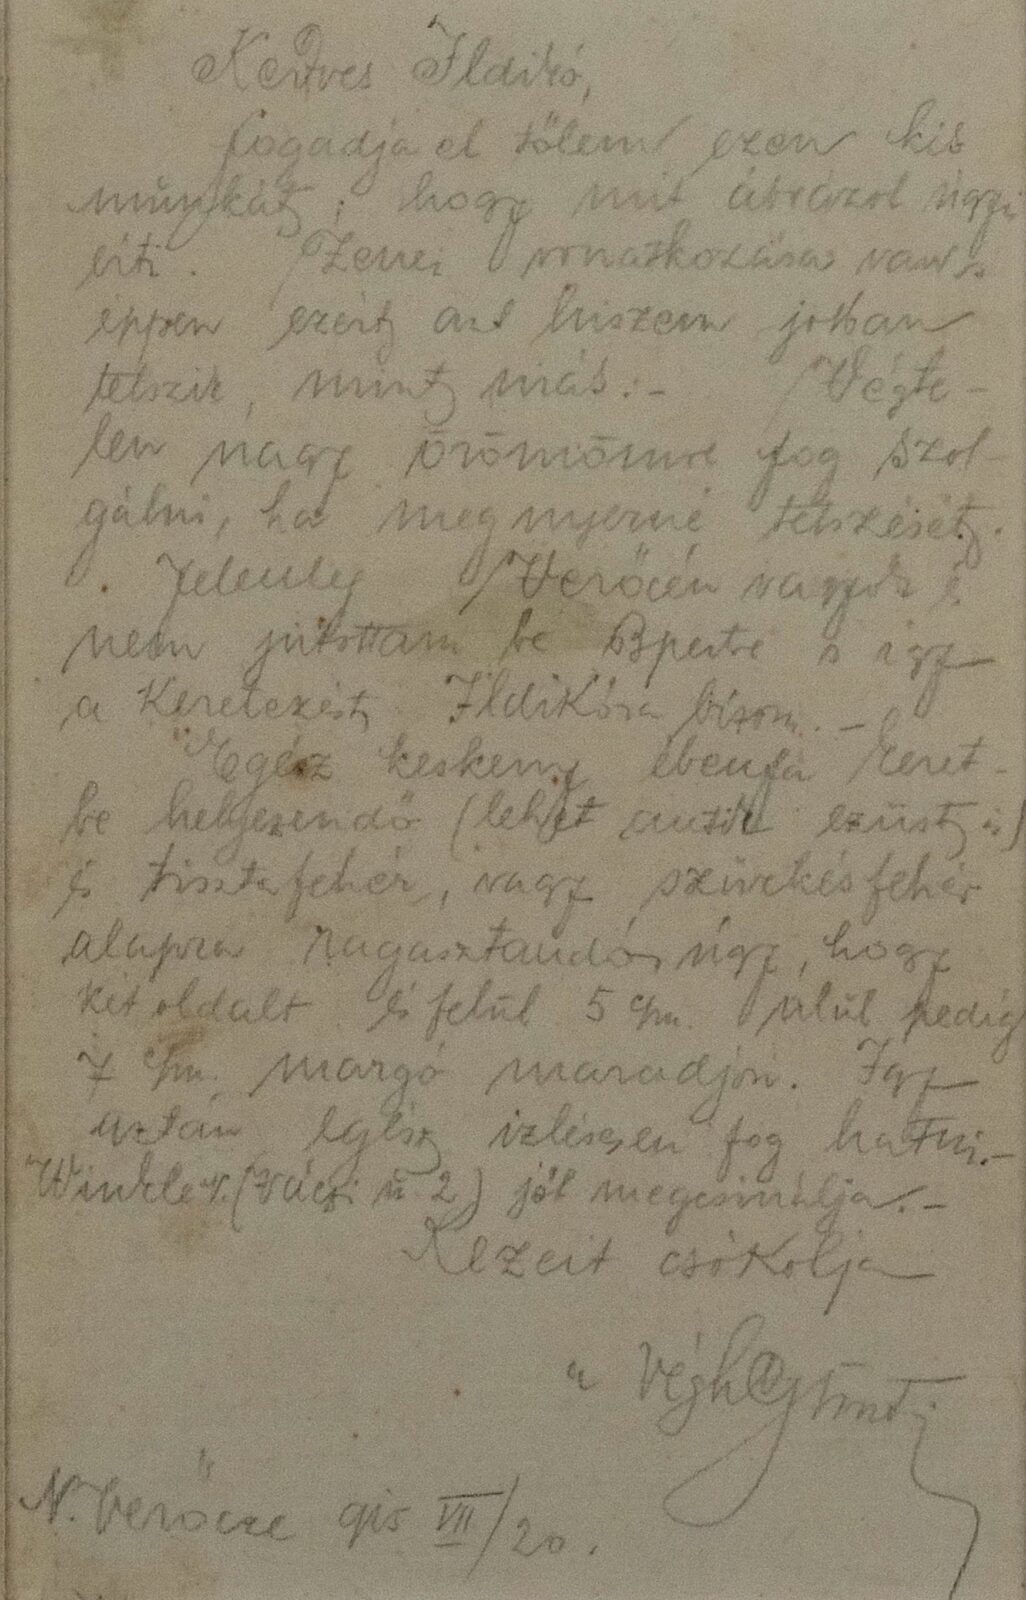 Kedves Ildikó,
fogadja el tőlem ezen kis
munkát; hogy mit ábrázol úgyis
érti. Zenei vonatkozása van s
éppen ezért azt hiszem jobban
tetszik, mint más.-  Végte-
len nagy örömömre fog szol-
gálni, ha megnyerné tetszését.
Jelenleg Verőcén vagyok s
nem jutottam be Bpestre s így
a keretezést Ildikóra bízom.-
Egész keskeny ébenfa keret-
be helyezendő (lehet antik ezüst is)
és tisztafehér, vagy szürkésfehér
alapra ragasztandó úgy, hogy
két oldalt és felül 5 cm. alul pedig
7 cm. margó maradjon. Így
aztán egész izlésesen fog hatni.-
Winkler. (Váczi u 2) jól megcsinálja.-
Kezeit csókolja
a Végh Gusztáv
N. Verőcze 918 VII/20.